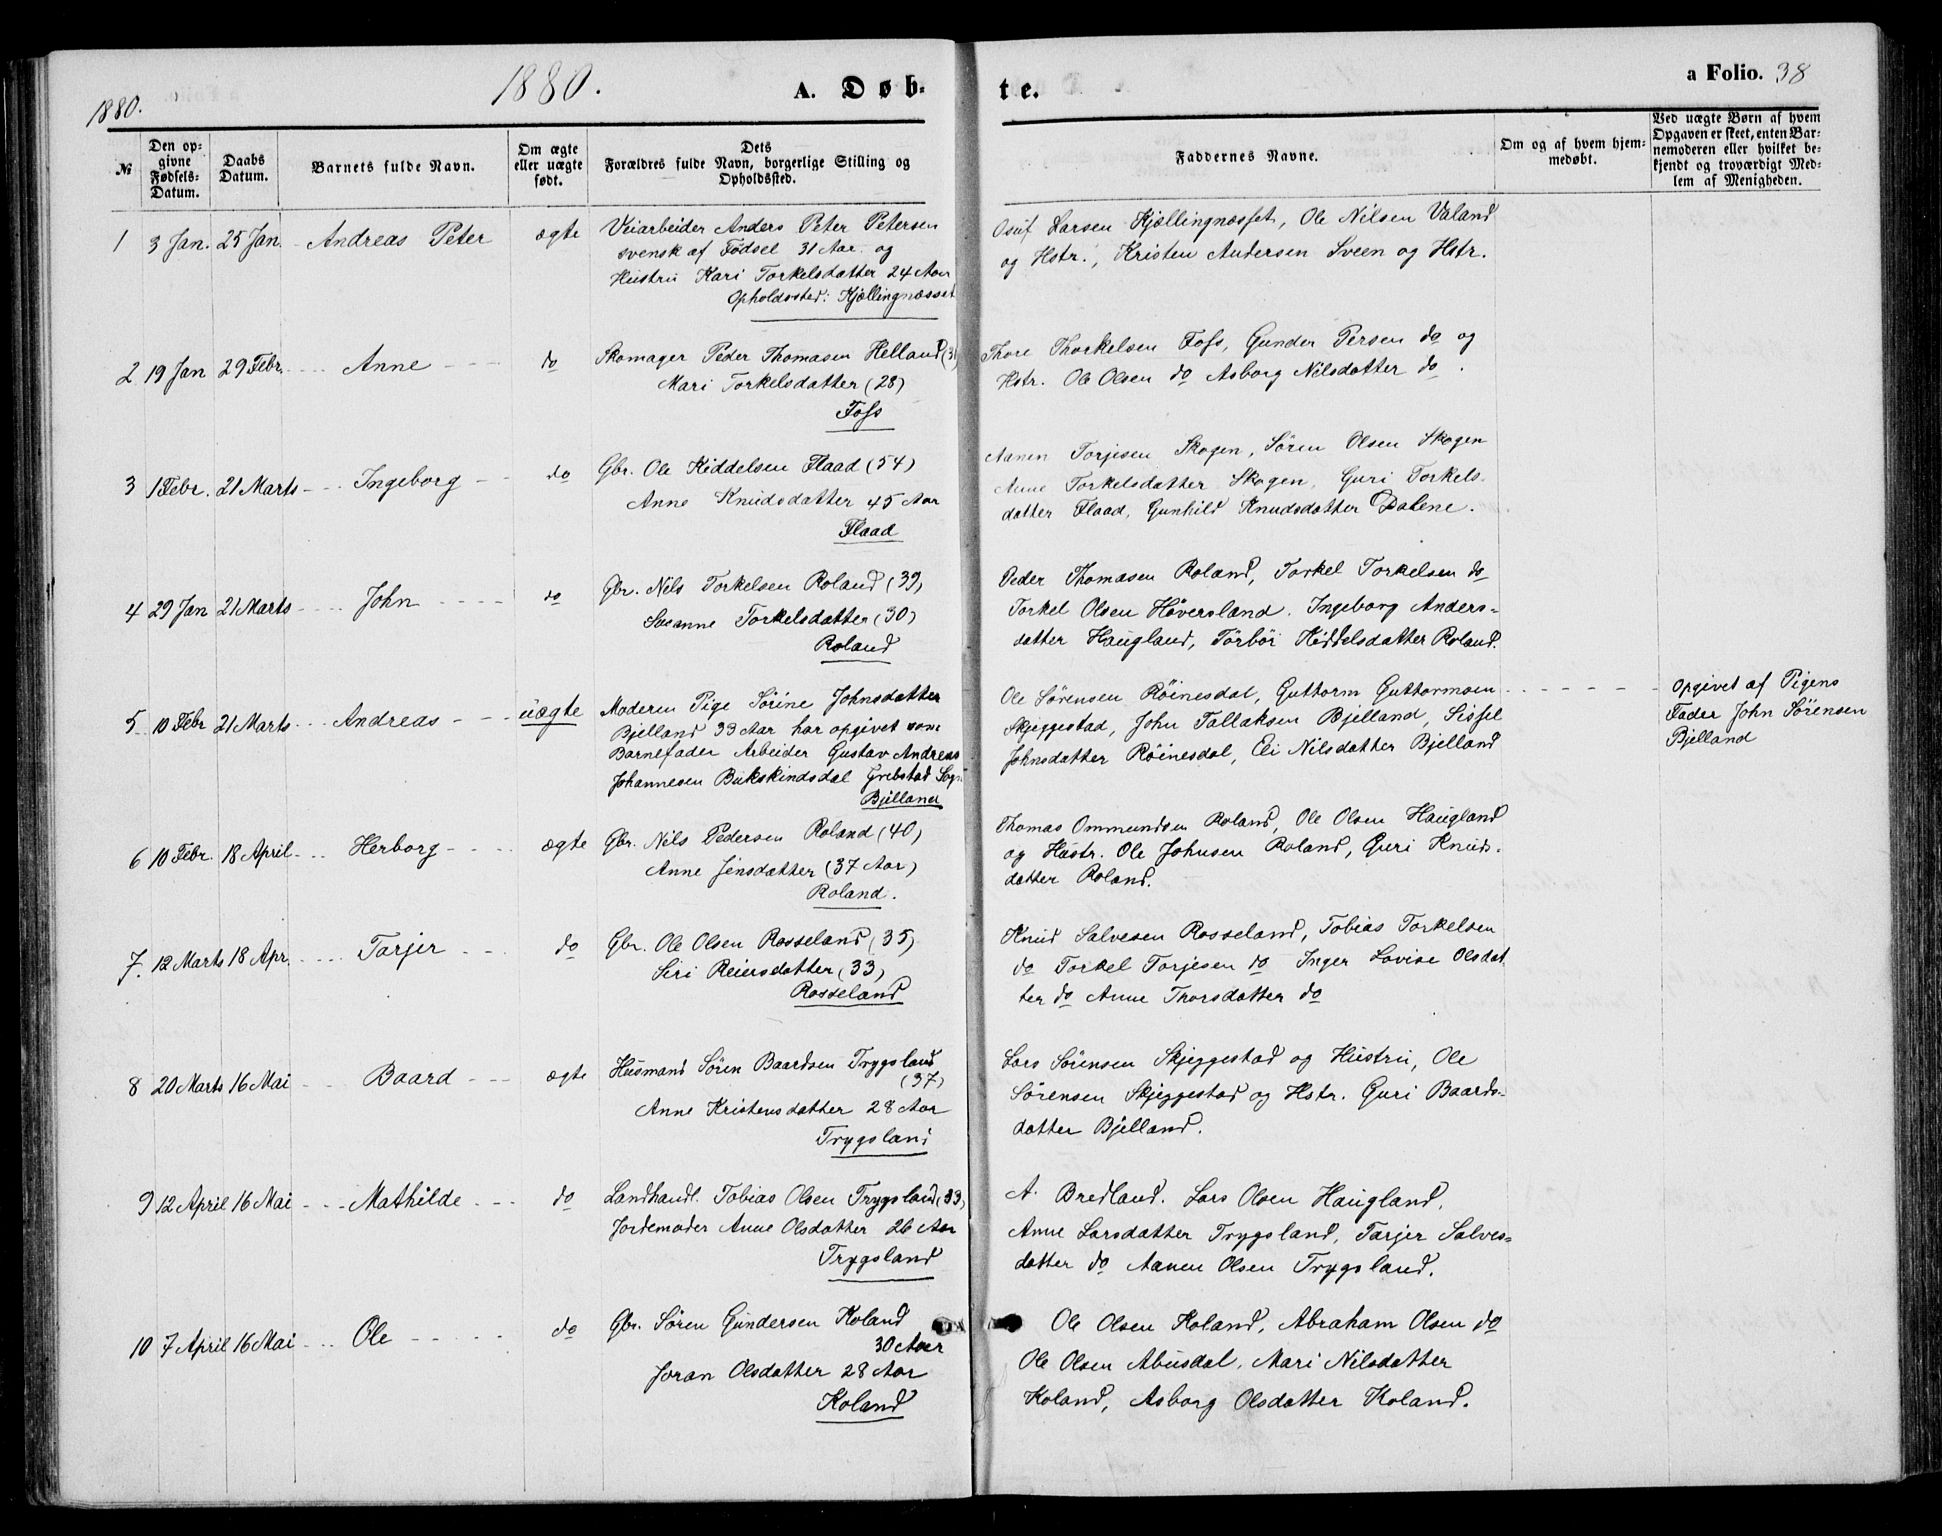 1880.
1880.
A. Døb-
te.
a Folio. 38
№
Den op-
givne
Fødsels-
Datum.
Daabs
Datum.
Barnets fulde Navn.
Om ægte
eller uægte
født.
Dets
Forældres fulde Navn, borgerlige Stilling og
Opholdssted.
Faddernes Navne.
Om og af hvem hjem-
medøbt.
Ved uægte Børn af hvem
Opgaven er skeet, enten Bar-
nemoderen eller hvilket be-
kjendt og troværdigt Med-
lem af Menigheden.
1 3 Jan. 25 Jan. Andreas Peter ægte
Veiarbeider Anders Peter Petersen
svensk af Fødsel 31 Aar og
Hustru Kari Torkelsdatter 24 Aar
Opholdssted: Kjællingnæsset
Larsen Kjællingnæsset, Ole Nilsen Valand
og Hstr., Kristen Andersen Sveen og Hstr.
2 19 Jan 29 Febr. Anne do
Skomager Peder Thomasen Helland (31
Mari Torkelsdatter (28)
Foss
Thore Thorkelsen Foss, Gunder Persen do og
Hstr. Ole Olsen do Asborg Nilsdatter do.
3 1 Febr. 21 Marts Ingeborg do
Gbr. Ole Kiddelsen Flaad (54)
Anne Knudsdatter 45 Aar
Flaad
Aanen Torjesen Skogen, Sören Olsen Skogen
Anne Torkelsdatter Skogen, Guri Torkels-
datter Flaad, Gunhild Knudsdatter Dalene.
4 29 Jan 21 Marts John do
Gbr. Nils Torkelsen Roland (39)
Susanne Torkelsdatter (30)
Roland
Peder Thomasen Roland, Torkel Torkelsen do
Torkel Olsen Höversland. Ingeborg Anders-
datter Haugland, Törbör Kiddelsdatter Roland.
5 10 Febr 21 Marts Andreas uægte
Moderen Pige Sörine Johnsdatter
Bjelland 33 Aar har opgivet som
Barnefader Arbeider Gustav Andreas
Johannesen Bukskindsdal Grebstad Sogn
Bjelland
Ole Sörensen Röinesdal, Guttorm Guttormsen
Skjeggestad, John Tallaksen Bjelland, Sissel
Johnsdatter Röinesdal, Eli Nilsdatter Bjelland
Opgivet af Pigens
Fader John Sörensen
Bjelland
6 10 Febr. 18 April Herborg ægte
Gbr. Nils Pedersen Roland (40)
Anne Jensdatter (37 Aar)
Roland.
Thomas Ommundsen Roland, Ole Olsen Haugland
og Hustr. Ole Johnsen Roland, Guri Knuds-
datter Roland.
7. 12 Marts 18 Apr. Tarjer do
Gbr. Ole Olsen Rosseland (35)
Siri Reiersdatter (33)
Rosseland
Knud Salvesen Rosseland, Tobias Torkelsen
do Torkel Torjesen do Inger Lovise Olsdat-
ter do Anne Thorsdatter do
8 20 Marts 16 Mai Baard ægte
Husmand Sören Baardsen Trygsland
(37)
Anne Kristensdatter 28 Aar
Trygsland
Lars Sörensen Skjeggestad og Hustru, Ole
Sörensen Skjeggestad og Hstr. Guri Baards-
datter Bjelland.
9 12 April 16 Mai Mathilde do
Landhandl. Tobias Olsen Trygsland (33)
Jordemoder Anne Olsdatter 26 Aar
Trygsland
A. Bredland. Lars Olsen Haugland,
Anne Larsdatter Trygsland, Tarjer Salves-
datter do Aanen Olsen Trygsland.
10 7 April 16 Mai Ole do
Gbr. Sören Gundersen Koland
30 Aar
Joran Olsdatter 28 Aar
Koland
Ole Olsen Koland, Abraham Olsen do
Ole Olsen Abusdal, Mari Nilsdatter
Koland, Asborg Olsdatter Koland.